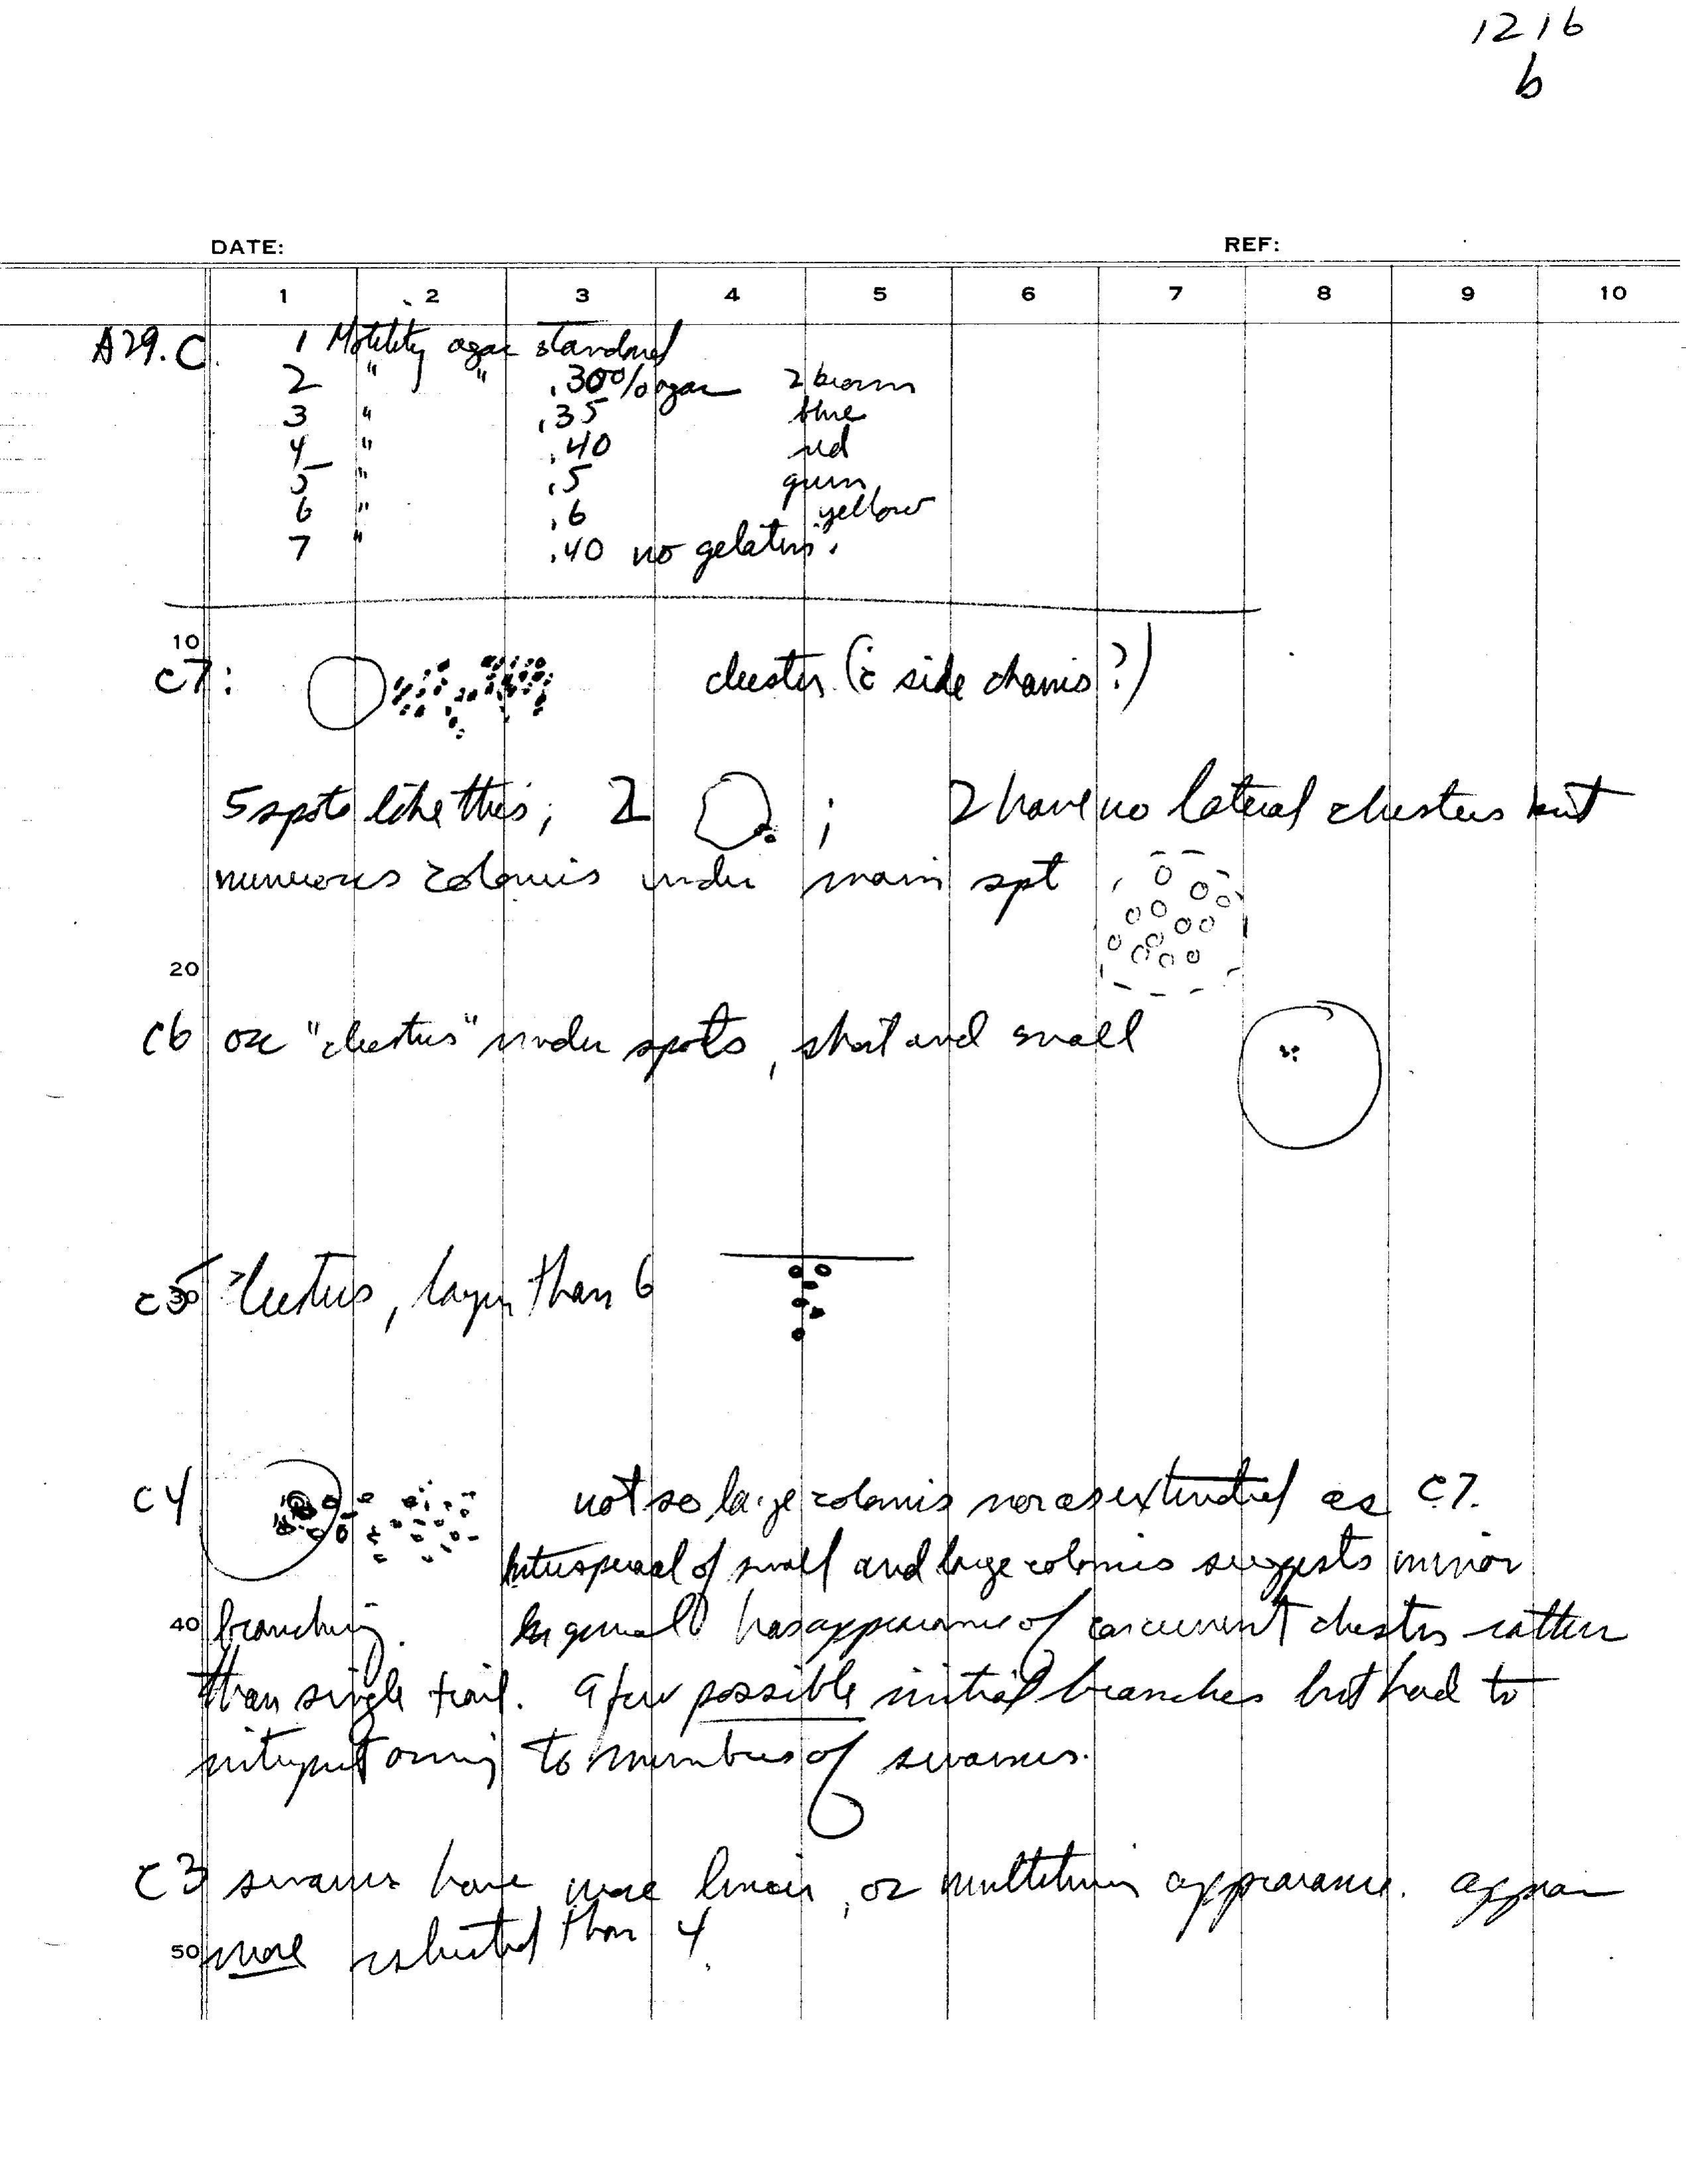 1216
b
DATE: REF:
1 2 3 4 5 6 7 8 9 10
A29.C. 1 Motility agar standard
2 " " .30% agar 2 brown
3 " .35 blue
4 " .40 red
5 " .5 green
6 " .6 yellow
7 " .40 no gelatin.
10
C7: cluster (c̄ side chains?)
5 spots like this; 2 ; 2 have no lateral clusters but
numerous colonies under main spot
20
C6 occ "clusters" under spots, short and small
C5 30 clusters, larger than 6
C4 not so large colonies nor as extended as C7.
Interspersal of small and large colonies suggests minor
40 branching. In general has appearance of concurrent clusters rather
than single trail. A few possible initial branches but hard to
interpret owing to numbers of swarms.
C3 swarms have more linear, or appearance. appear
50 more than 4.